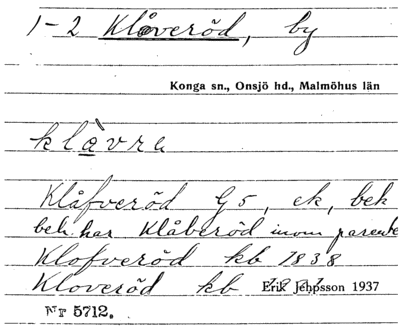 1-2 Klåveröd, by
Konga sn., Onsjö hd., Malmöhus län
klàvra
Klåfveröd G5, ek, bek
bek. har Klåberöd inom parente
Klofveröd kb 1838
Kloveröd kb Erik Jeppsson 1937
Nr 5712.